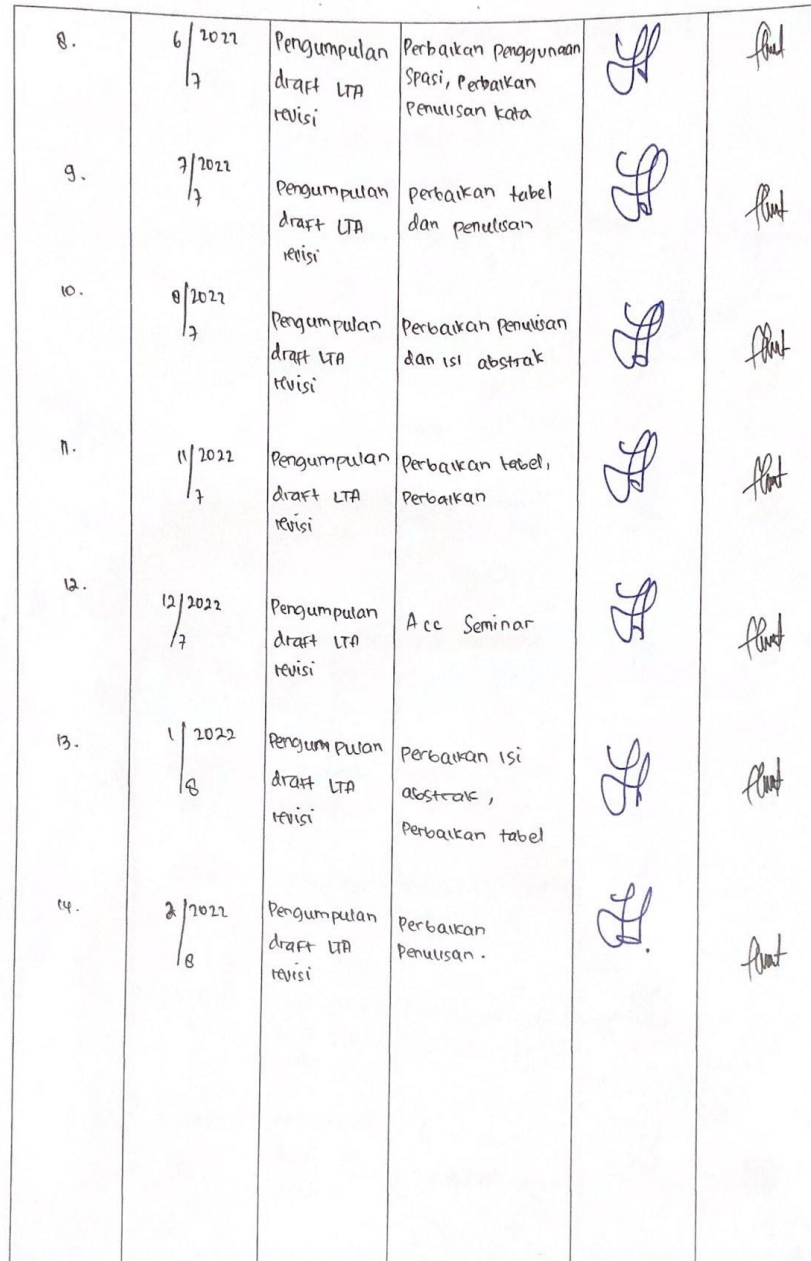 8.
6/2022
7
Pengumpulan
draft LTA
revisi
Perbaikan penggunaan
Spasi, Perbaikan
Penulisan kata
9.
7/2022
7
Pengumpulan
draft LTA
revisi
Perbaikan tabel
dan penulisan
10.
8/2022
7
Pengumpulan
draft LTA
revisi
Perbaikan Penulisan
dan isi abstrak
11.
11/2022
7
Pengumpulan
draft LTA
revisi
Perbaikan tabel,
Perbaikan
12.
12/2022
7
Pengumpulan
draft LTA
revisi
Acc Seminar
13.
1/2022
8
Pengumpulan
draft LTA
revisi
Perbaikan isi
abstrak,
Perbaikan tabel
14.
2/2022
8
Pengumpulan
draft LTA
revisi
Perbaikan
Penulisan.